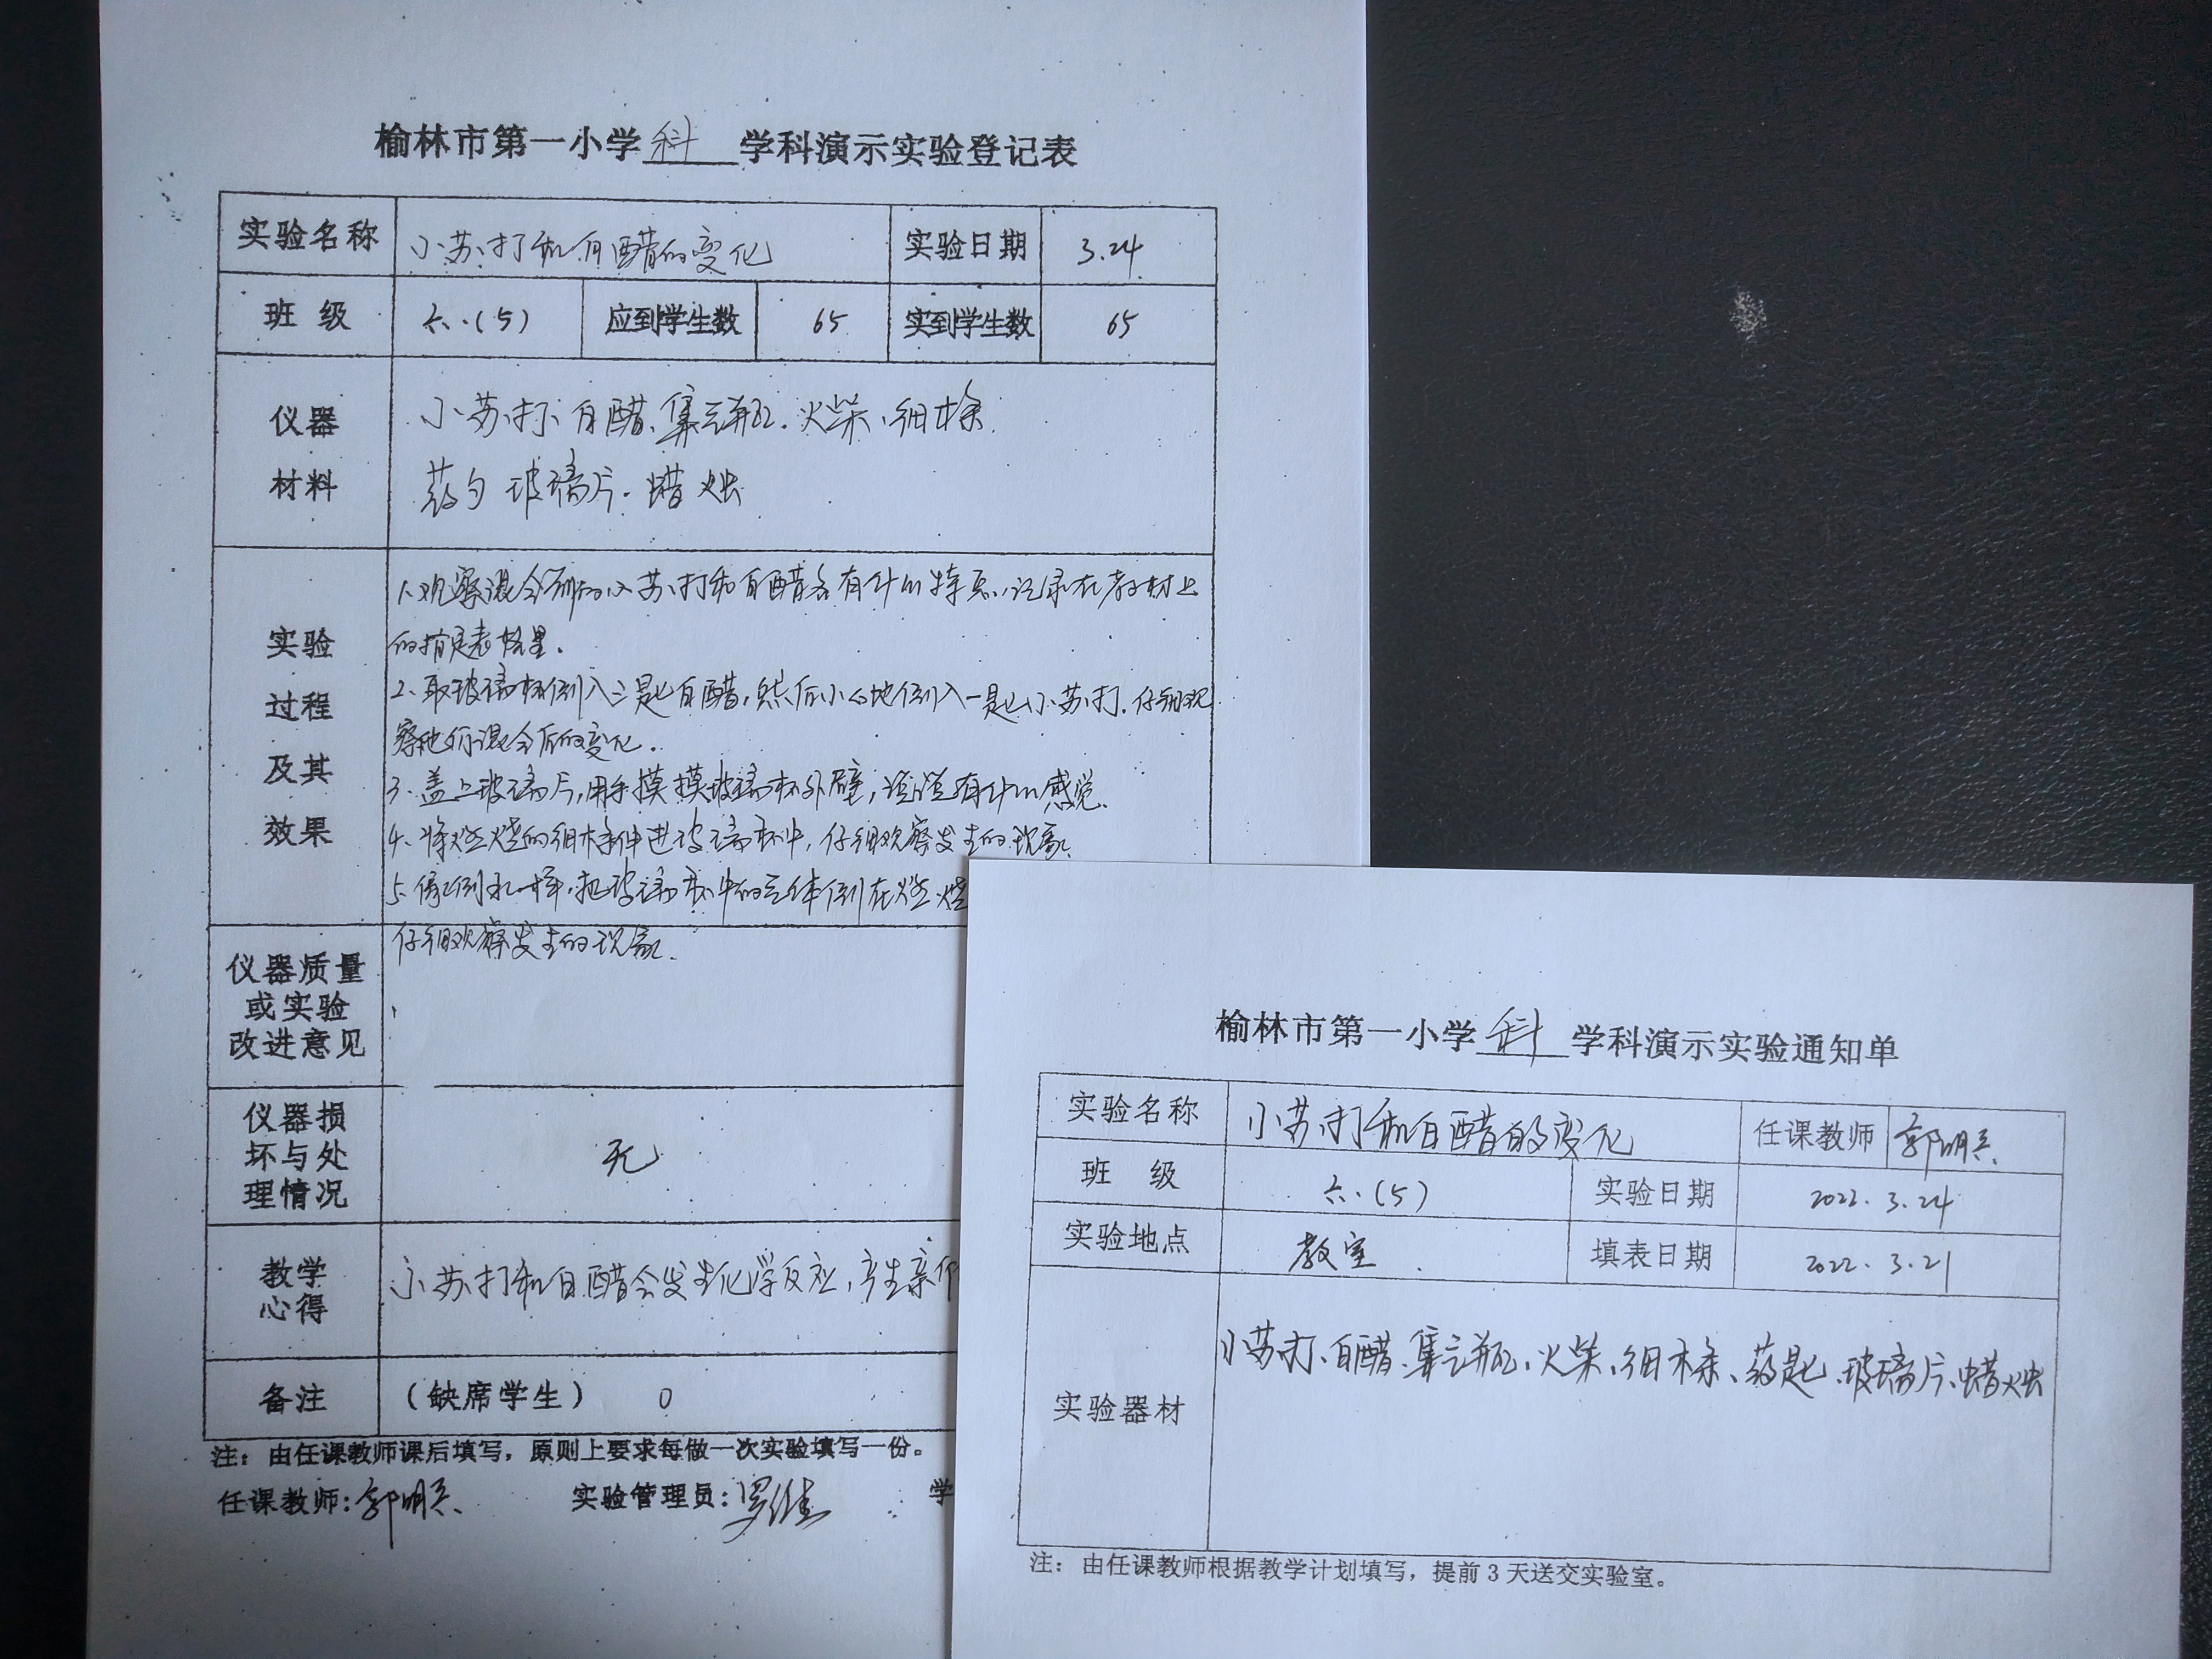 榆林市第一小学科学科演示实验登记表
实验名称 小苏打和白醋的变化 实验日期 3.24
班 级 六.(5) 应到学生数 65 实到学生数 65
仪器
材料
小苏打、白醋、集气瓶.火柴、细木条
药勺 玻璃片.蜡烛
实验
过程
及其
效果
1.观察混合前的小苏打和白醋各有什么特点,记录在教材上
的指定表格里.
2.取玻璃杯倒入三匙白醋,然后小心地倒入一匙小苏打.仔细观
察他们混合后的变化.
3.盖上玻璃片,用手摸摸玻璃杯外壁,说说有什么感觉.
4.将燃烧的细木条伸进玻璃杯中,仔细观察发生的现象.
5.像倒水一样,把玻璃杯中的气体倒在燃烧
仔细观察发生的现象.
仪器质量
或实验
改进意见
仪器损
坏与处
理情况
无
教学
心得
小苏打和白醋会发生化学反应,产生新
备注 (缺席学生) 0
注：由任课教师课后填写，原则上要求每做一次实验填写一份。
任课教师: 实验管理员: 学
榆林市第一小学科学科演示实验通知单
实验名称 小苏打和白醋的变化 任课教师
班 级 六.(5) 实验日期 2022.3.24
实验地点 教室 填表日期 2022.3.21
实验器材 小苏打、白醋、集气瓶、火柴、细木条、药匙、玻璃片、蜡烛
注：由任课教师根据教学计划填写，提前3天送交实验室。